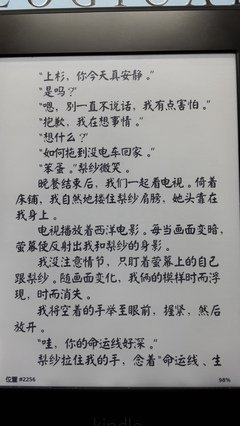 “上杉，你今天真安静。”
“是吗？”
“嗯，别一直不说话，我有点害怕。”
“抱歉，我在想事情。”
“想什么？”
“如何拖到没电车回家。”
“笨蛋。”梨纱微笑。
晚餐结束后，我们一起看电视。倚着
床铺，我自然地搂住梨纱肩膀，她头靠在
我身上。
电视播放着西洋电影。每当画面变暗，
萤幕便反射出我和梨纱的身影。
我没注意情节，只盯着萤幕上的自己
跟梨纱。随画面变化，我俩的模样时而浮
现，时而消失。
我将空着的手举至眼前，握紧，然后
放开。
“哇，你的命运线好深。”
梨纱拉住我的手，念着“命运线、生
位置 #2256
98%
kindle